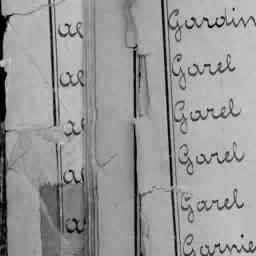 Gardin
Garel
Garel
Garel
Garel
Garnie